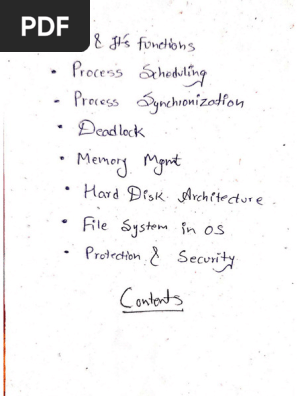 PDF
& Its functions
• Process Scheduling
- Process Synchronization
• Deadlock
• Memory Mgmt
• Hard Disk Architecture
• File System in OS
• Protection & Security
Contents